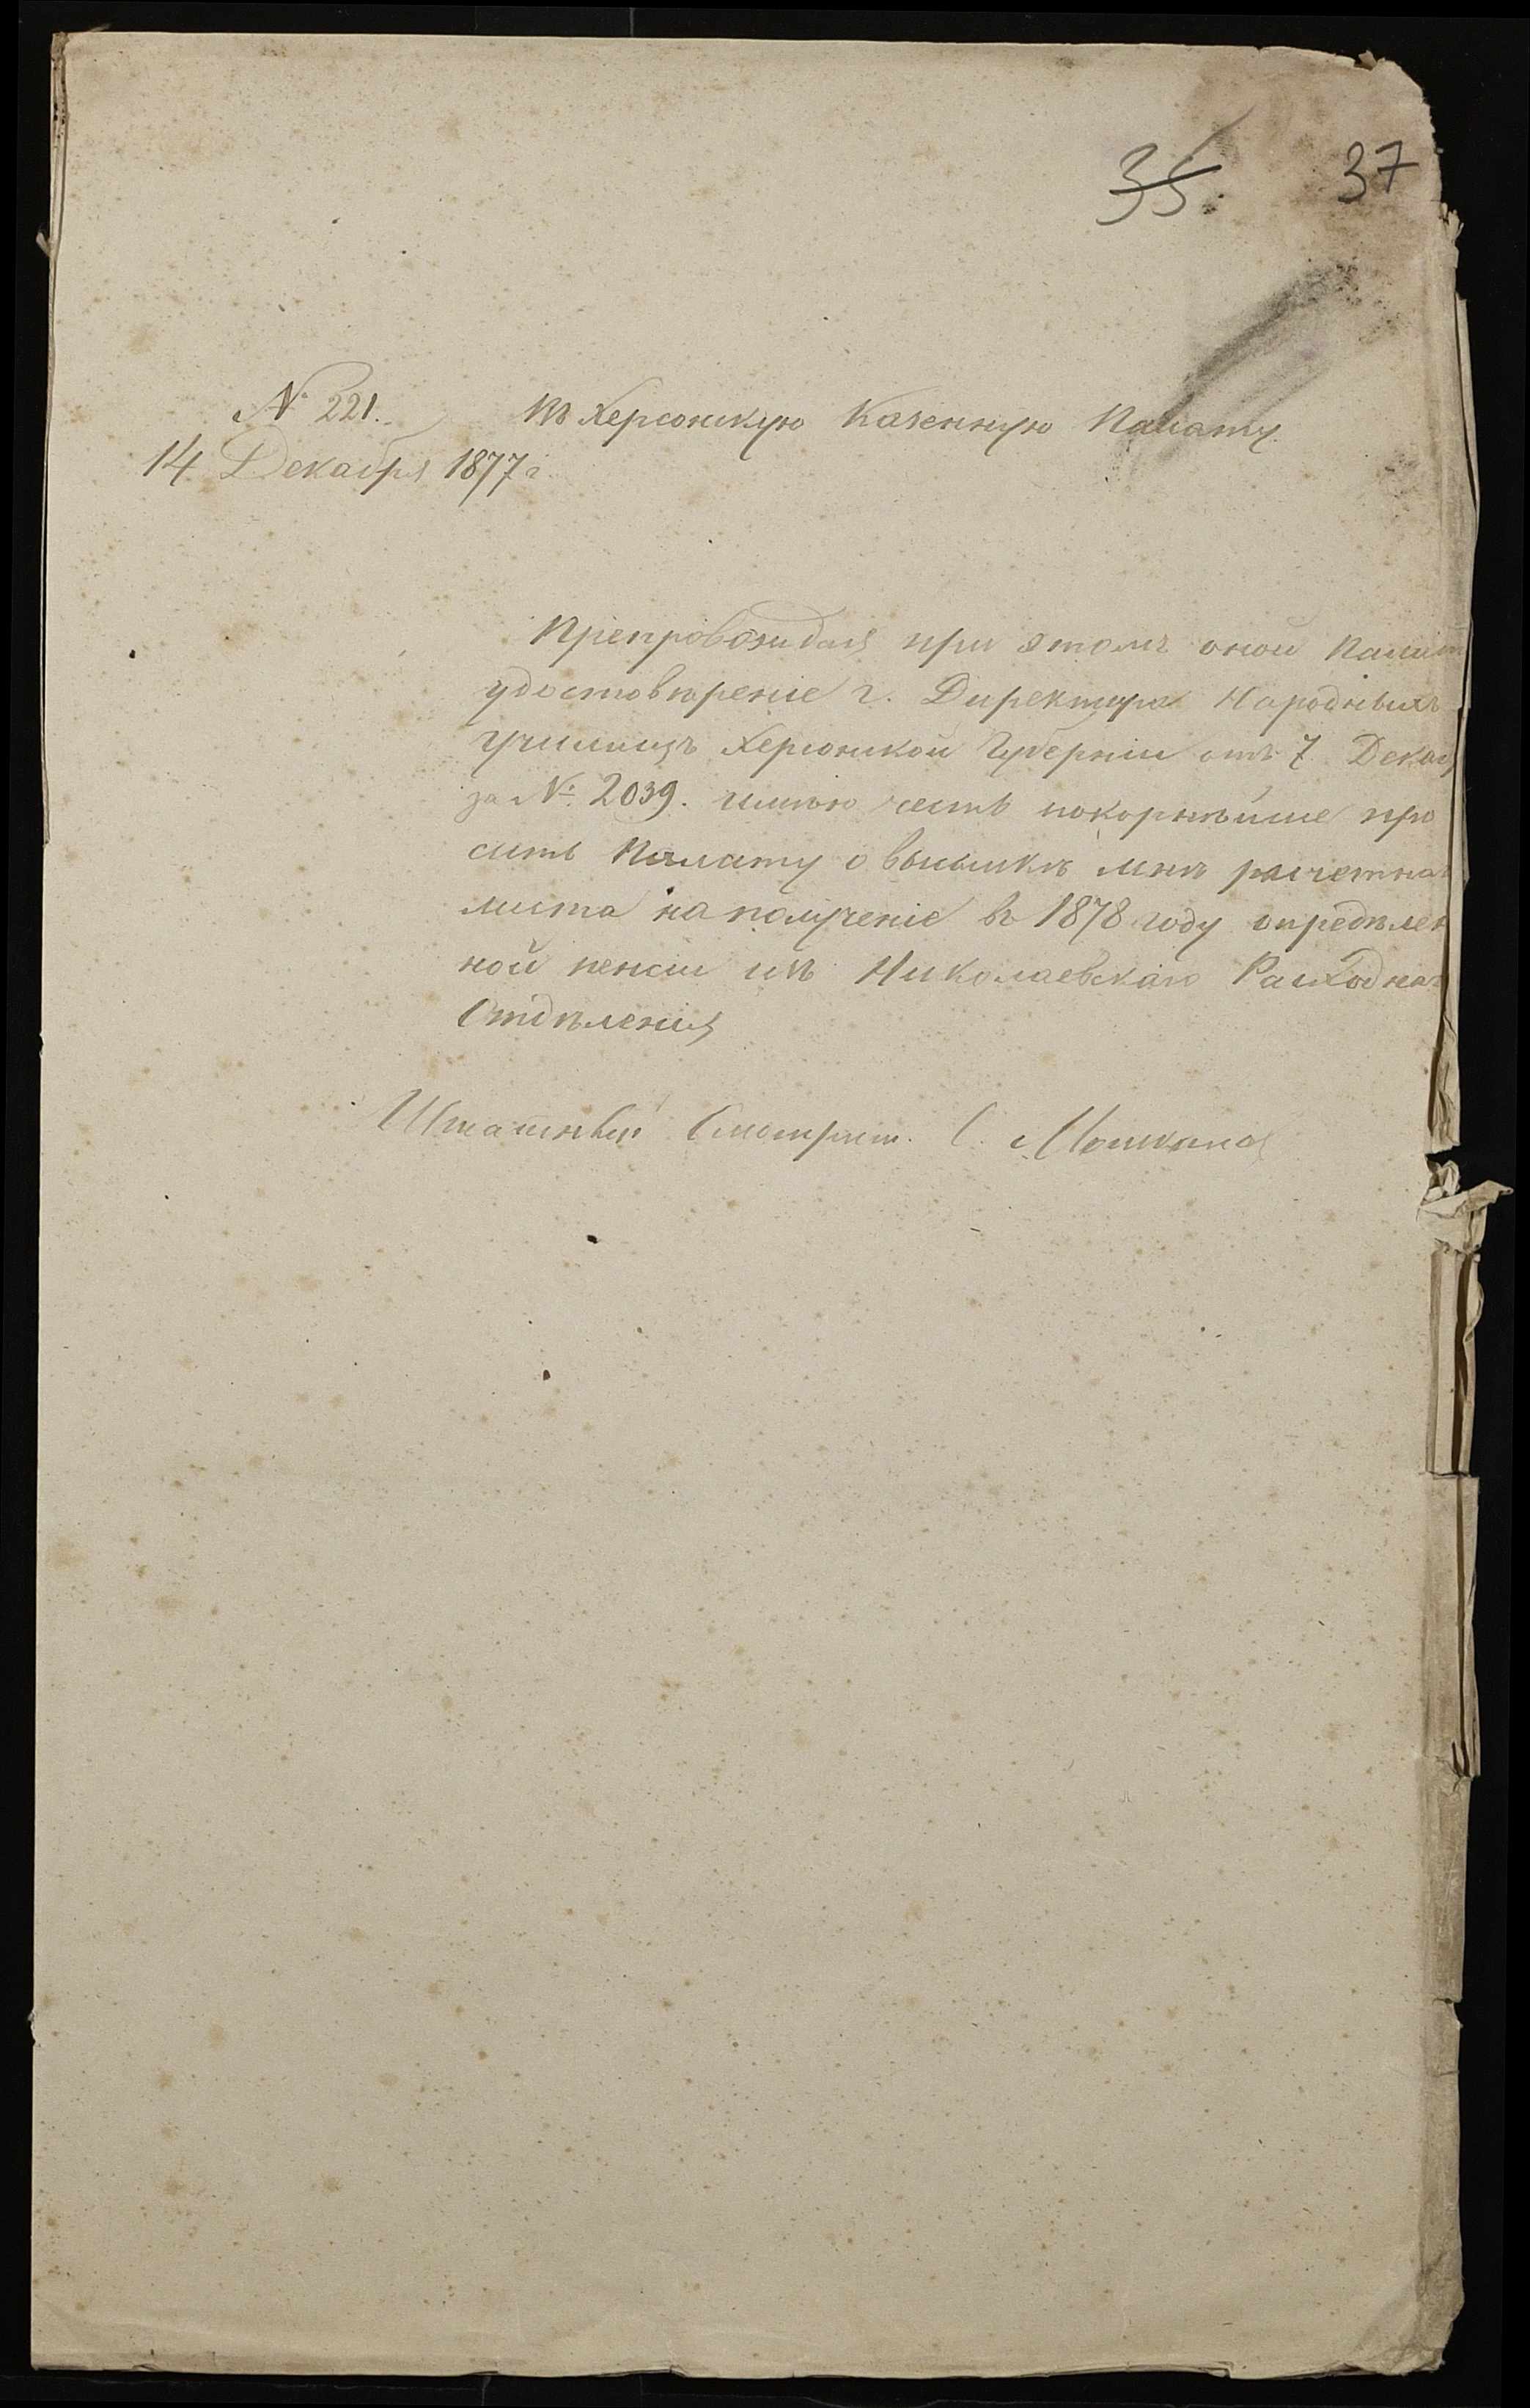 35. 37
№ 221.
Въ Херсонскую Казенную Палату.
14 Декабря 1877 г.
Препровождая при этомъ оной Палат
удостовѣреніе г. Директора Народныхъ
училищъ Херсонской Губерніи отъ 7 Декаб
за №: 2039. имѣю честь покорнѣйше про
сить Палату о высылкѣ мнѣ расчетнаг
листа на полученіе въ 1878 году опредѣлен
ной пенсіи изъ Николаевскаго Расходнаг
Отдѣленія
Штатный Смотрит. С.